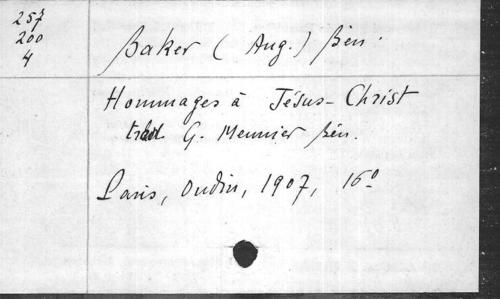 257
200
4
Baker (Aug.) Bén.
Hommages à Jésus-Christ
trad. G. Meunier Bén.
Paris, Oudin, 1907, 16°